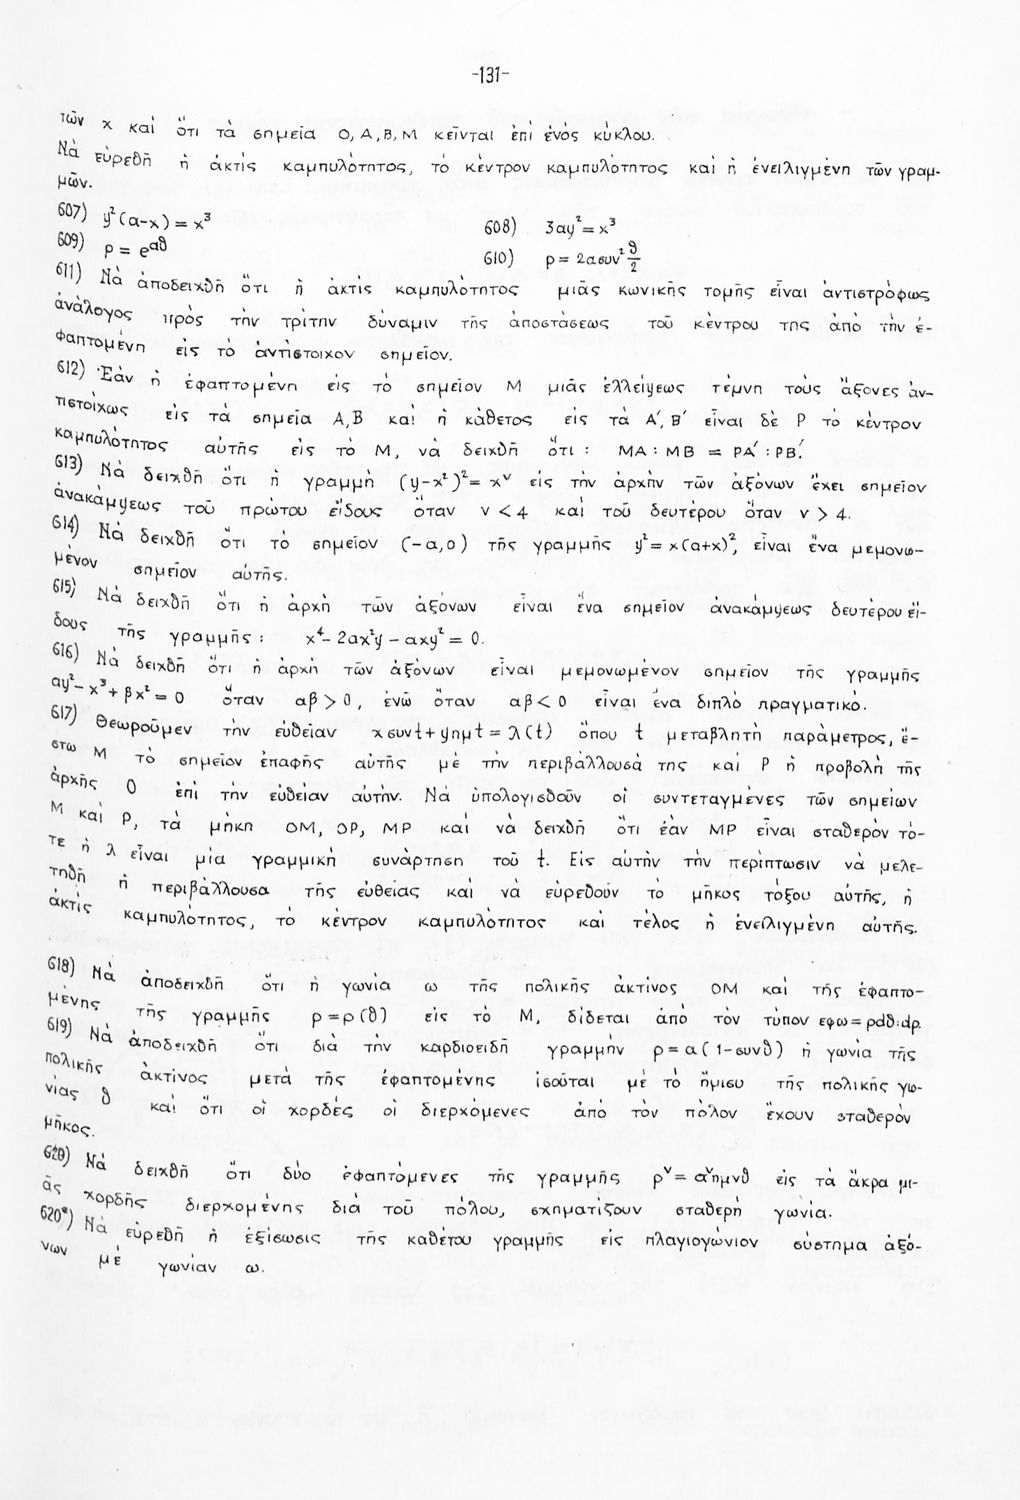 -131-
τῶν x καὶ ὅτι τὰ σημεῖα O, A, B, M κεῖνται ἐπὶ ἑνός κύκλου.
Νὰ εὑρεθῆ ἡ ἀκτὶς καμπυλότητος, τὸ κέντρον καμπυλότητος καὶ ἡ ἐνειλιγμένη τῶν γραμ-
μῶν.
607) y²(a-x) = x³ 608) 3ay² = x³
609) ρ = e^{aθ} 610) ρ = 2aσυν² θ/2
611) Νὰ ἀποδειχθῆ ὅτι ἡ ἀκτὶς καμπυλότητος μιᾶς κωνικῆς τομῆς εἶναι ἀντιστρόφως
ἀνάλογος πρὸς τὴν τρίτην δύναμιν τῆς ἀποστάσεως τοῦ κέντρου της ἀπὸ τὴν ἐ-
φαπτομένη εἰς τὸ ἀντίστοιχον σημεῖον.
612) Ἐὰν ἡ ἐφαπτομένη εἰς τὸ σημεῖον M μιᾶς ἐλλείψεως τέμνη τοὺς ἄξονες ἀν-
τιστοίχως εἰς τὰ σημεῖα A, B καὶ ἡ κάθετος εἰς τὰ A´, B´ εἶναι δὲ P τὸ κέντρον
καμπυλότητος αὐτῆς εἰς τὸ M, νὰ δειχθῆ ὅτι : MA : MB = PA´ : PB´.
613) Νὰ δειχθῆ ὅτι ἡ γραμμὴ (y-x²)² = x^ν εἰς τὴν ἀρχὴν τῶν ἀξόνων ἔχει σημεῖον
ἀνακάμψεως τοῦ πρώτου εἴδους ὅταν ν < 4 καὶ τοῦ δευτέρου ὅταν ν > 4.
614) Νὰ δειχθῆ ὅτι τὸ σημεῖον (-a, 0) τῆς γραμμῆς y² = x(a+x)², εἶναι ἕνα μεμονω-
μένον σημεῖον αὐτῆς.
615) Νὰ δειχθῆ ὅτι ἡ ἀρχὴ τῶν ἀξόνων εἶναι ἕνα σημεῖον ἀνακάμψεως δευτέρου εἴ-
δους τῆς γραμμῆς : x⁴ - 2ax²y - axy² = 0.
616) Νὰ δειχθῆ ὅτι ἡ ἀρχὴ τῶν ἀξόνων εἶναι μεμονωμένον σημεῖον τῆς γραμμῆς
ay² - x³ + βx² = 0 ὅταν aβ > 0, ἐνῶ ὅταν aβ < 0 εἶναι ἕνα διπλὸ πραγματικό.
617) Θεωροῦμεν τὴν εὐθεῖαν xσυνt + yημt = λ(t) ὅπου t μεταβλητὴ παράμετρος, ἔ-
στω M τὸ σημεῖον ἐπαφῆς αὐτῆς μὲ τὴν περιβάλλουσά της καὶ P ἡ προβολὴ τῆς
ἀρχῆς O ἐπὶ τὴν εὐθεῖαν αὐτήν. Νὰ ὑπολογισθοῦν οἱ συντεταγμένες τῶν σημείων
M καὶ P, τὰ μήκη OM, OP, MP καὶ νὰ δειχθῆ ὅτι ἐὰν MP εἶναι σταθερὸν τό-
τε ἡ λ εἶναι μία γραμμικὴ συνάρτηση τοῦ t. Εἰς αὐτὴν τὴν περίπτωσιν νὰ μελε-
τηθῆ ἡ περιβάλλουσα τῆς εὐθείας καὶ νὰ εὑρεθοῦν τὸ μῆκος τόξου αὐτῆς, ἡ
ἀκτὶς καμπυλότητος, τὸ κέντρον καμπυλότητος καὶ τέλος ἡ ἐνειλιγμένη αὐτῆς.
618) Νὰ ἀποδειχθῆ ὅτι ἡ γωνία ω τῆς πολικῆς ἀκτίνος OM καὶ τῆς ἐφαπτο-
μένης τῆς γραμμῆς ρ = ρ(θ) εἰς τὸ M, δίδεται ἀπὸ τὸν τύπον εφω = ρdθ:dρ.
619) Νὰ ἀποδειχθῆ ὅτι διὰ τὴν καρδιοειδῆ γραμμὴν ρ = a(1-συνθ) ἡ γωνία τῆς
πολικῆς ἀκτίνος μετὰ τῆς ἐφαπτομένης ἰσοῦται μὲ τὸ ἥμισυ τῆς πολικῆς γω-
νίας θ καὶ ὅτι οἱ χορδές οἱ διερχόμενες ἀπὸ τὸν πόλον ἔχουν σταθερὸν
μῆκος.
620) Νὰ δειχθῆ ὅτι δύο ἐφαπτόμενες τῆς γραμμῆς ρ^ν = a^ν ημνθ εἰς τὰ ἄκρα μι-
ᾶς χορδῆς διερχομένης διὰ τοῦ πόλου, σχηματίζουν σταθερὴ γωνία.
620*) Νὰ εὑρεθῆ ἡ ἐξίσωσις τῆς καθέτου γραμμῆς εἰς πλαγιογώνιον σύστημα ἀξό-
νων μὲ γωνίαν ω.